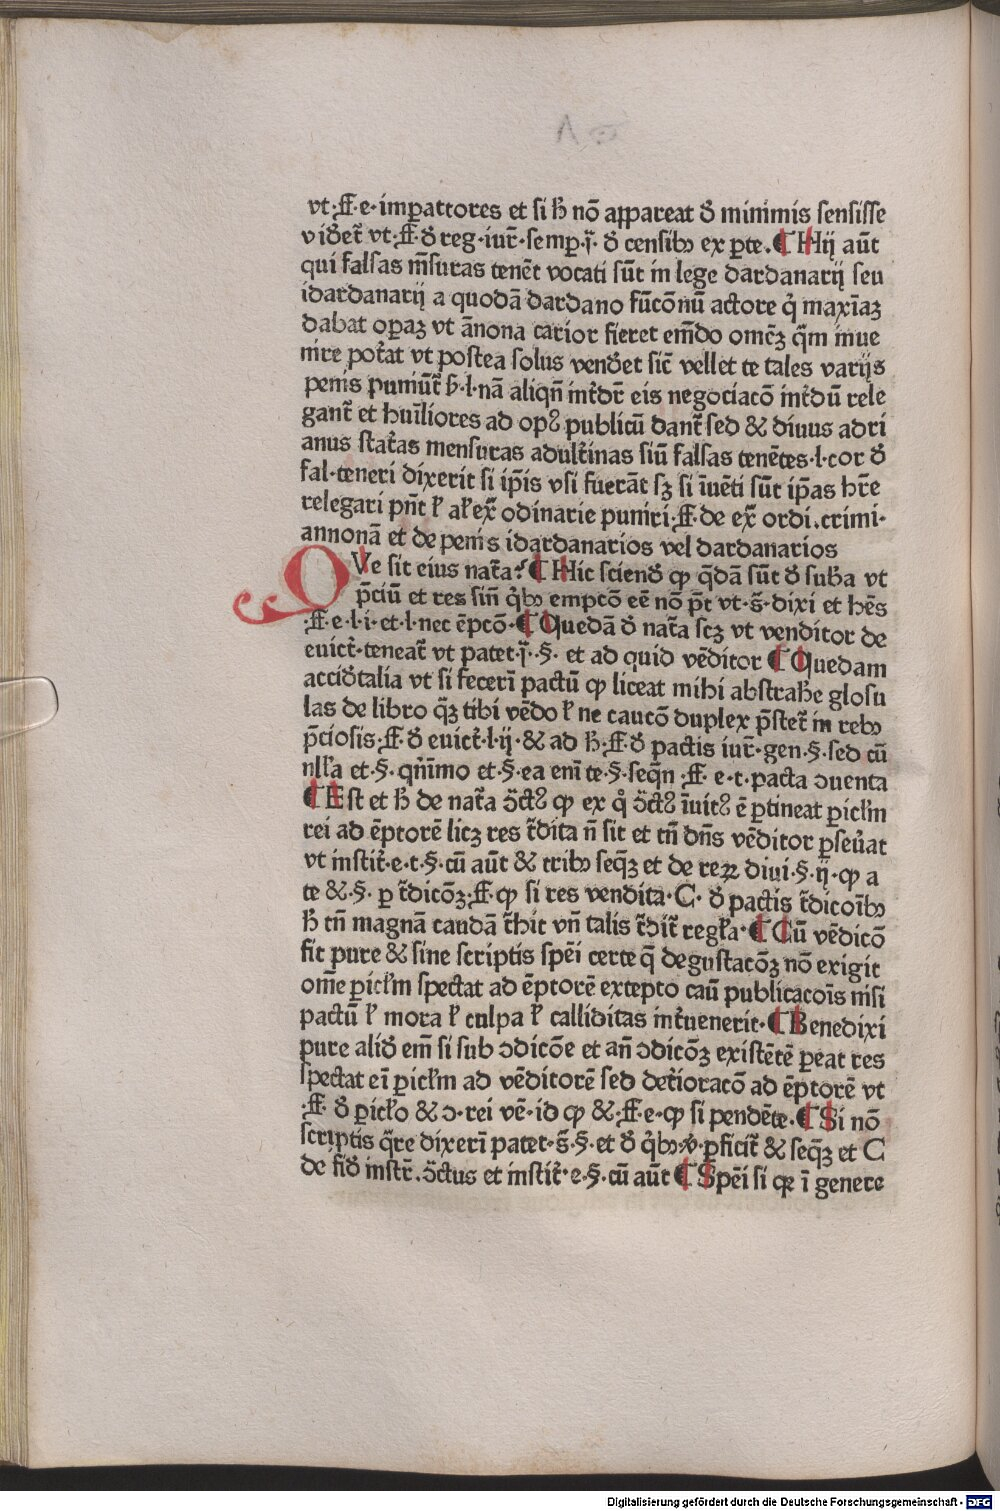 vt·ff·e·imꝑattores et si ħ nō appareat ð minimis sensisse
viðet᷑ vt·ff·ð reg·iur̄·semꝑ·i̅·ð censibꝫ ex ꝑte.¶ Hij aūt
qui falsas m̄suras tenēt vocati sūt in lege dardanarij seu
idardanarij a quodā dardano fūcōnū actore q̇ maxīaꝫ
dabat oꝑaꝫ vt ānona carior fieret em̄do omēꝫ q̄m inue
nire pot᷑at vt postea solus venðet sic̄ vellet te tales varijs
penis puniūt᷑ ƀ·l·nā aliqn̄ int᷑dr̄ eis negociacō int᷑dū rele
gant᷑ et huīliores ad opꝰ publicū dant᷑ sed & diuus adri
anus stat᷑as mensuras adult᷑inas siū falsas tenētes·l·cor ð
fal·teneri dixerit si ip̄is vsi fuerāt sꝫ si īuēti sūt ip̄as hr̄e
relegari pn̄t ł ał ex᷑ odinarie puniri·ff·de ex᷑ ordi.crimi·
annonā et de penis idardanarios vel dardanarios
QVe sit eius nat᷑a?¶ Hic sciendð ꝙ q̄dā sūt ð suƀa vt
p̄ciū et res sin̄ q̇bꝫ empcō eē nō p̄t vt·s̄·dixi et hēs
·ff·e·l·i·et·l·nec ēpcō·¶ Quedā ð nat᷑a scꝫ vt venditor de
euict᷑·teneat᷑ vt patet·i̅·§· et ad quid vēditor ¶ Quedam
acciðtalia vt si fecerī pactū ꝙ liceat mihi abstraħe glosu
las de libro q̄ꝫ tibi vēdo ł ne caucō duplex p̄stet᷑ in rebꝫ
p̄ciosis·ff·ð euict᷑·l·ij·& ad ħ·ff·ð pactis iur̄·gen·§·sed cū
nłła et·§·qn̄īmo et·§·ea enī te·§·seqn̄·ff· e·t·pacta ɔuenta
¶ Est et ħ de nat᷑a ɔ̄ct᷑ꝰ ꝙ ex q̊ ɔ̄ct᷑ꝰ īuitꝰ ē ꝑtineat ꝑicłm
rei ad ēptorē licꝫ res t᷑dita n̄ sit et tn̄ dn̄s vēditor ꝑseuat᷑
vt instit᷑·e·t·§·cū aūt & tribꝫ seq̄ꝫ et de reꝝ diui·§·ij·ꝙ a
te &·§· ꝑ t᷑dicōꝫ·ff·ꝙ si res vendita·C· ð pactis t᷑dicoībꝫ
ħ tn̄ magnā caudā t᷑hit vn̄ talis t᷑dit᷑ regła·¶ Cū vēdicō
fit pure & sine scriptis spēi certe q̄ degustacōꝫ nō exigit
om̄e ꝑicłm spectat ad ēptorē extepto caū publicacoīs nisi
pactū ł mora ł culpa ł calliditas int᷑uenerit·¶ Benedixi
pure alið em̄ si sub ɔdicōe et an̄ ɔdicōꝫ existētē ꝑeat res
spectat eī ꝑicłm ad vēditorē sed det᷑ioracō ad ēptorē vt
·ff· ð ꝑicło & ɔ·rei vē·id ꝙ &·ff·e·ꝙ si pendēte·¶ Si nō
scriptis q̄re dixerī patet·s̄·§·et ð q̇bꝫ·v̇·ꝑficit᷑ & seq̄ꝫ et C
de fið instr̄.ɔ̄ctus et instit᷑·e·§·cū aūt ¶ Spēi si qꝛ ī genere
Digitalisierung gefördert durch die Deutsche Forschungsgemeinschaft - DFG